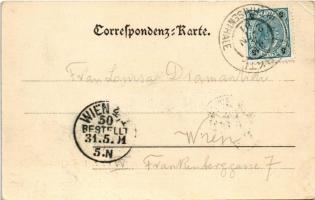 Correspondenz-Karte.
Frau Louise
WIEN 4/1
50
BESTELLT
31.5.
5.N
Wien
IV Frankenberggasse 7